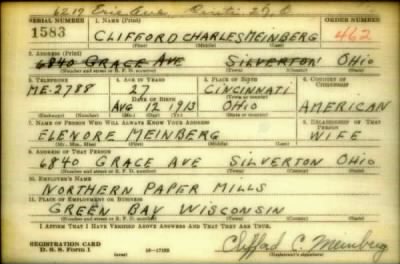 6217 Erie Ave Cinti 27, O
SERIAL NUMBER 1. NAME (Print) ORDER NUMBER
1583 CLIFFORD CHARLES MEINBERG 462
(First) (Middle) (Last)
2. ADDRESS (Print)
6840 GRACE AVE SILVERTON OHIO
(Number and street or R. F. D. number) (Town) (County) (State)
3. TELEPHONE 4. AGE IN YEARS 5. PLACE OF BIRTH 6. COUNTRY OF CITIZENSHIP
ME-2788 27 CINCINNATI
DATE OF BIRTH (Town or county)
AUG 12 1913 OHIO AMERICAN
(Exchange) (Number) (Mo.) (Day) (Yr.) (State or country)
7. NAME OF PERSON WHO WILL ALWAYS KNOW YOUR ADDRESS 8. RELATIONSHIP OF THAT PERSON
ELENORE MEINBERG WIFE
(Mr., Mrs., Miss) (First) (Middle) (Last)
9. ADDRESS OF THAT PERSON
6840 GRACE AVE SILVERTON OHIO
(Number and street or R. F. D. number) (Town) (County) (State)
10. EMPLOYER'S NAME
NORTHERN PAPER MILLS
11. PLACE OF EMPLOYMENT OR BUSINESS
GREEN BAY WISCONSIN
(Number and street or R. F. D. number) (Town) (County) (State)
I AFFIRM THAT I HAVE VERIFIED ABOVE ANSWERS AND THAT THEY ARE TRUE.
REGISTRATION CARD
D. S. S. Form 1 (over) 16-17105 Clifford C. Meinberg
(Registrant's signature)